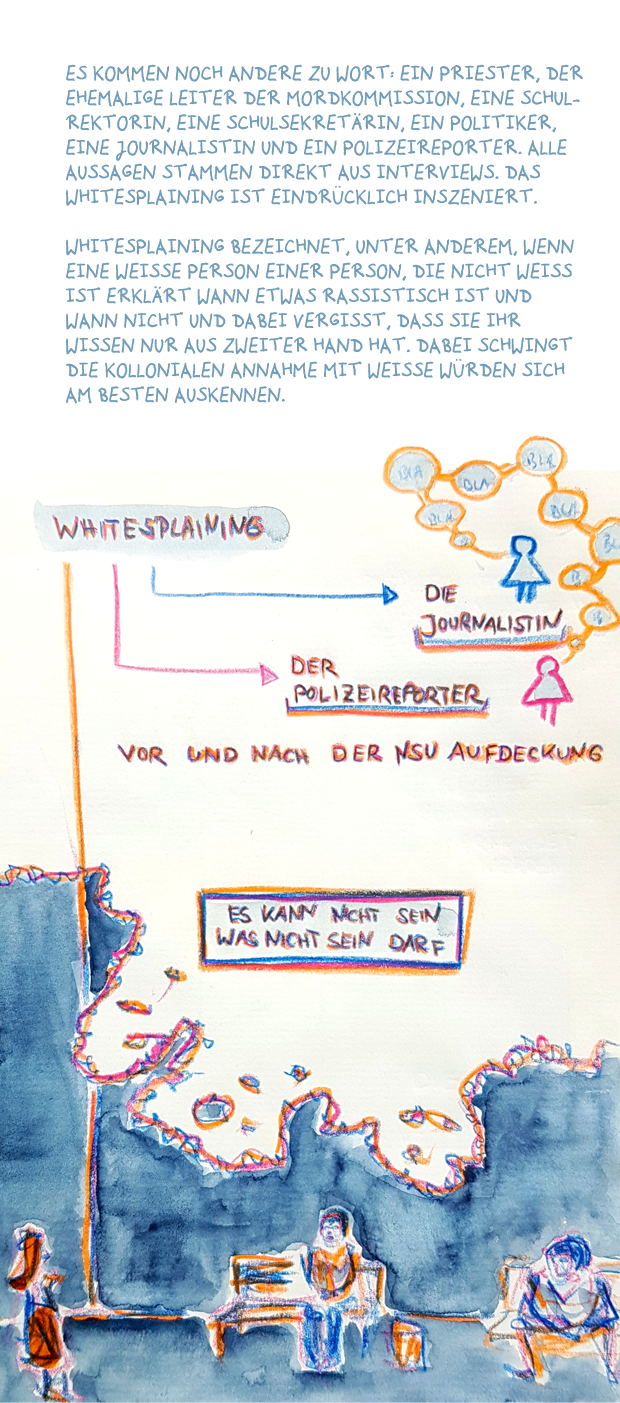 ES KOMMEN NOCH ANDERE ZU WORT: EIN PRIESTER, DER
EHEMALIGE LEITER DER MORDKOMMISSION, EINE SCHUL-
REKTORIN, EINE SCHULSEKRETÄRIN, EIN POLITIKER,
EINE JOURNALISTIN UND EIN POLIZEIREPORTER. ALLE
AUSSAGEN STAMMEN DIREKT AUS INTERVIEWS. DAS
WHITESPLAINING IST EINDRÜCKLICH INSZENIERT.
WHITESPLAINING BEZEICHNET, UNTER ANDEREM, WENN
EINE WEISSE PERSON EINER PERSON, DIE NICHT WEISS
IST ERKLÄRT WANN ETWAS RASSISTISCH IST UND
WANN NICHT UND DABEI VERGISST, DASS SIE IHR
WISSEN NUR AUS ZWEITER HAND HAT. DABEI SCHWINGT
DIE KOLLONIALEN ANNAHME MIT WEISSE WÜRDEN SICH
AM BESTEN AUSKENNEN.
BLA
BLA
BLA
BLA
BLA
WHITESPLAINING
DIE
JOURNALISTIN
DER
POLIZEIREPORTER
VOR UND NACH DER NSU AUFDECKUNG
ES KANN NICHT SEIN
WAS NICHT SEIN DARF